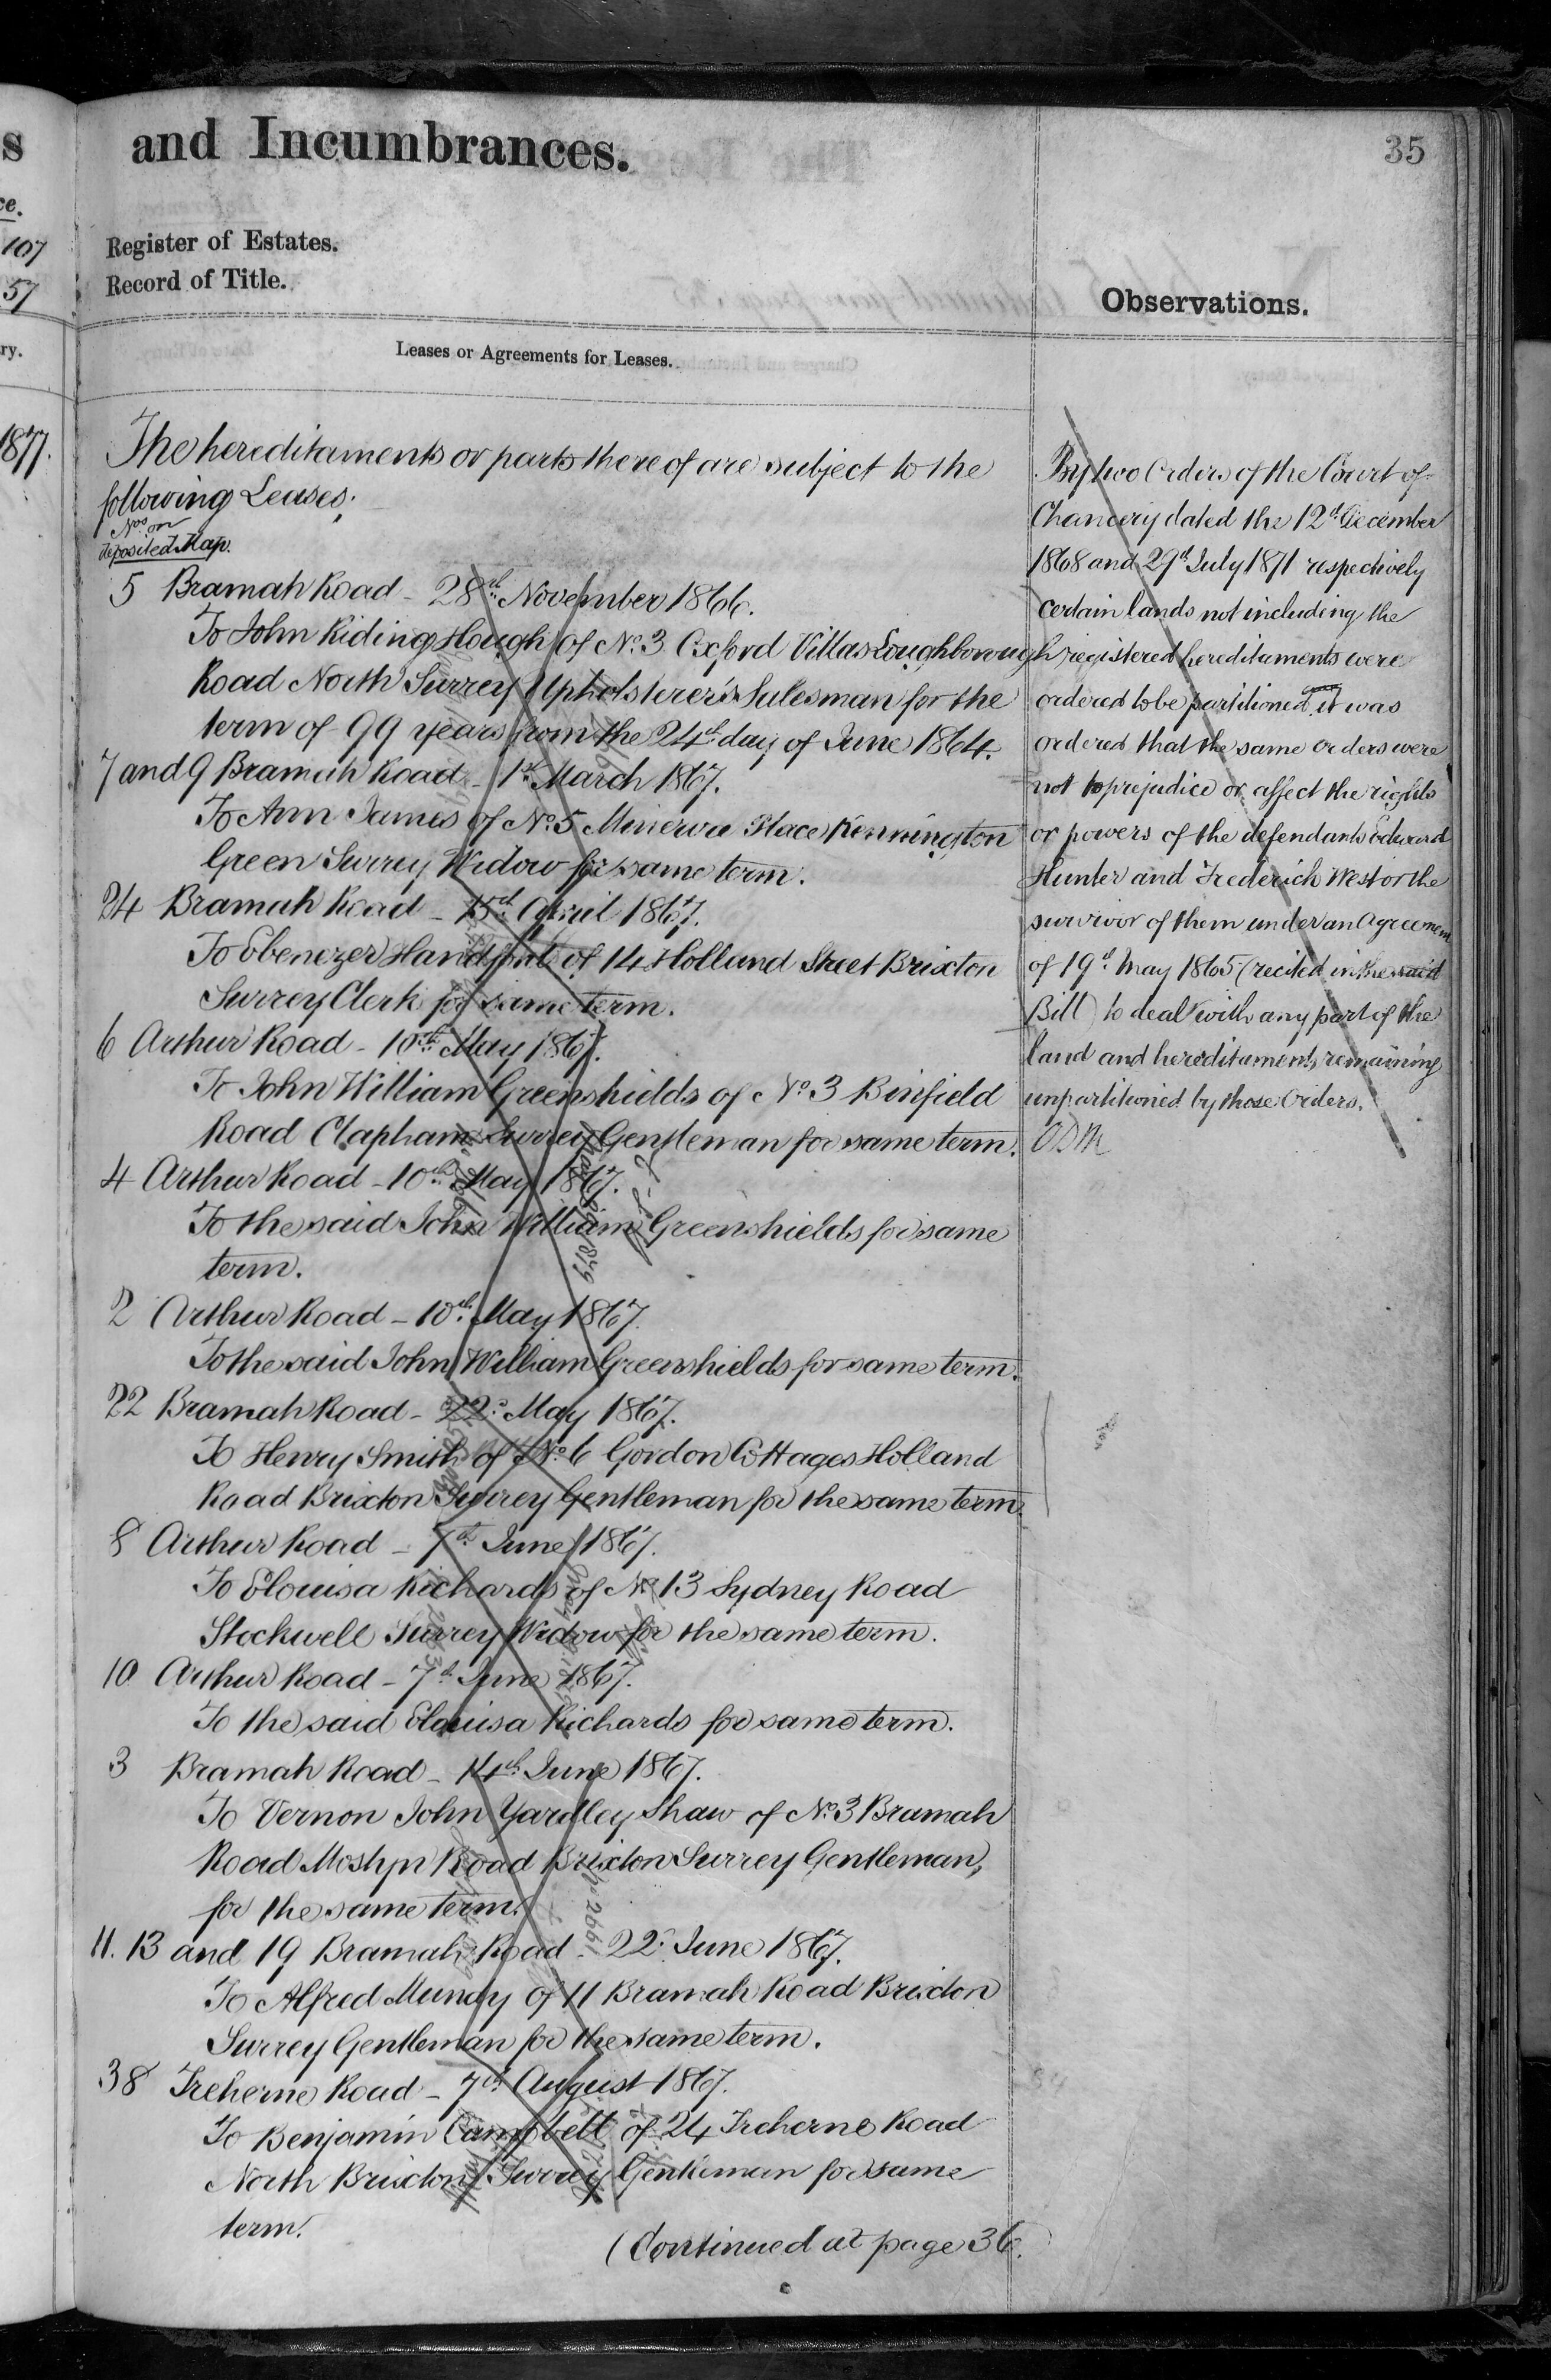 s
ce.
107
57
ry.
1877.
and Incumbrances.
35
Register of Estates.
Record of Title.
Leases or Agreements for Leases.
The hereditaments or parts thereof are subject to the
following Leases;
Nos on
deposited Map.
5 Bramah Road - 28th November 1866.
To John Riding Hough of No. 3 Oxford Villas Loughborough
Road North Surrey Upholsterer's Salesman for the
term of 99 years from the 24th day of June 1864.
7 and 9 Bramah Road - 1st March 1867.
To Ann James of No. 5 Minerva Place Kennington
Green Surrey Widow for same term.
24 Bramah Road - 15th April 1867.
To Ebenezer of 14 Holland Street Brixton
Surrey Clerk for same term.
6 Arthur Road - 10th May 1867.
To John William Greenshields of No. 3 Binfield
Road Clapham Surrey Gentleman for same term.
4 Arthur Road - 10th May 1867.
To the said John William Greenshields for same
term.
2 Arthur Road - 10th May 1867.
To the said John William Greenshields for same term.
22 Bramah Road - 22d May 1867.
To Henry Smith of No. 6 Gordon Cottages Holland
Road Brixton Surrey Gentleman for the same term.
8 Arthur Road - 7th June 1867.
To Elouisa Richards of No 13 Sydney Road
Stockwell Surrey Widow for the same term.
10 Arthur Road - 7th June 1867.
To the said Elouisa Richards for same term.
3 Bramah Road - 14th June 1867.
To Vernon John Yardley Shaw of No. 3 Bramah
Road Mostyn Road Brixton Surrey Gentleman,
for the same term.
11. 13 and 19 Bramah Road - 22d June 1867.
To Alfred Munday of 11 Bramah Road Brixton
Surrey Gentleman for the same term.
38 Treherne Road - 7th August 1867.
To Benjamin Campbell of 24 Treherne Road
North Brixton Surrey Gentleman for same
term.
(Continued at page 36.)
Observations.
By two Orders of the Court of
Chancery dated the 12th December
1868 and 29th July 1871 respectively
certain lands not including the
registered hereditaments were
ordered to be partitioned it was
ordered that the same orders were
not to prejudice or affect the rights
or powers of the defendants Edward
Hunter and Frederich West or the
survivor of them under an Agreement
of 19th May 1865 (recited in the said
Bill) to deal with any part of the
land and hereditaments remaining
unpartitioned by those Orders.